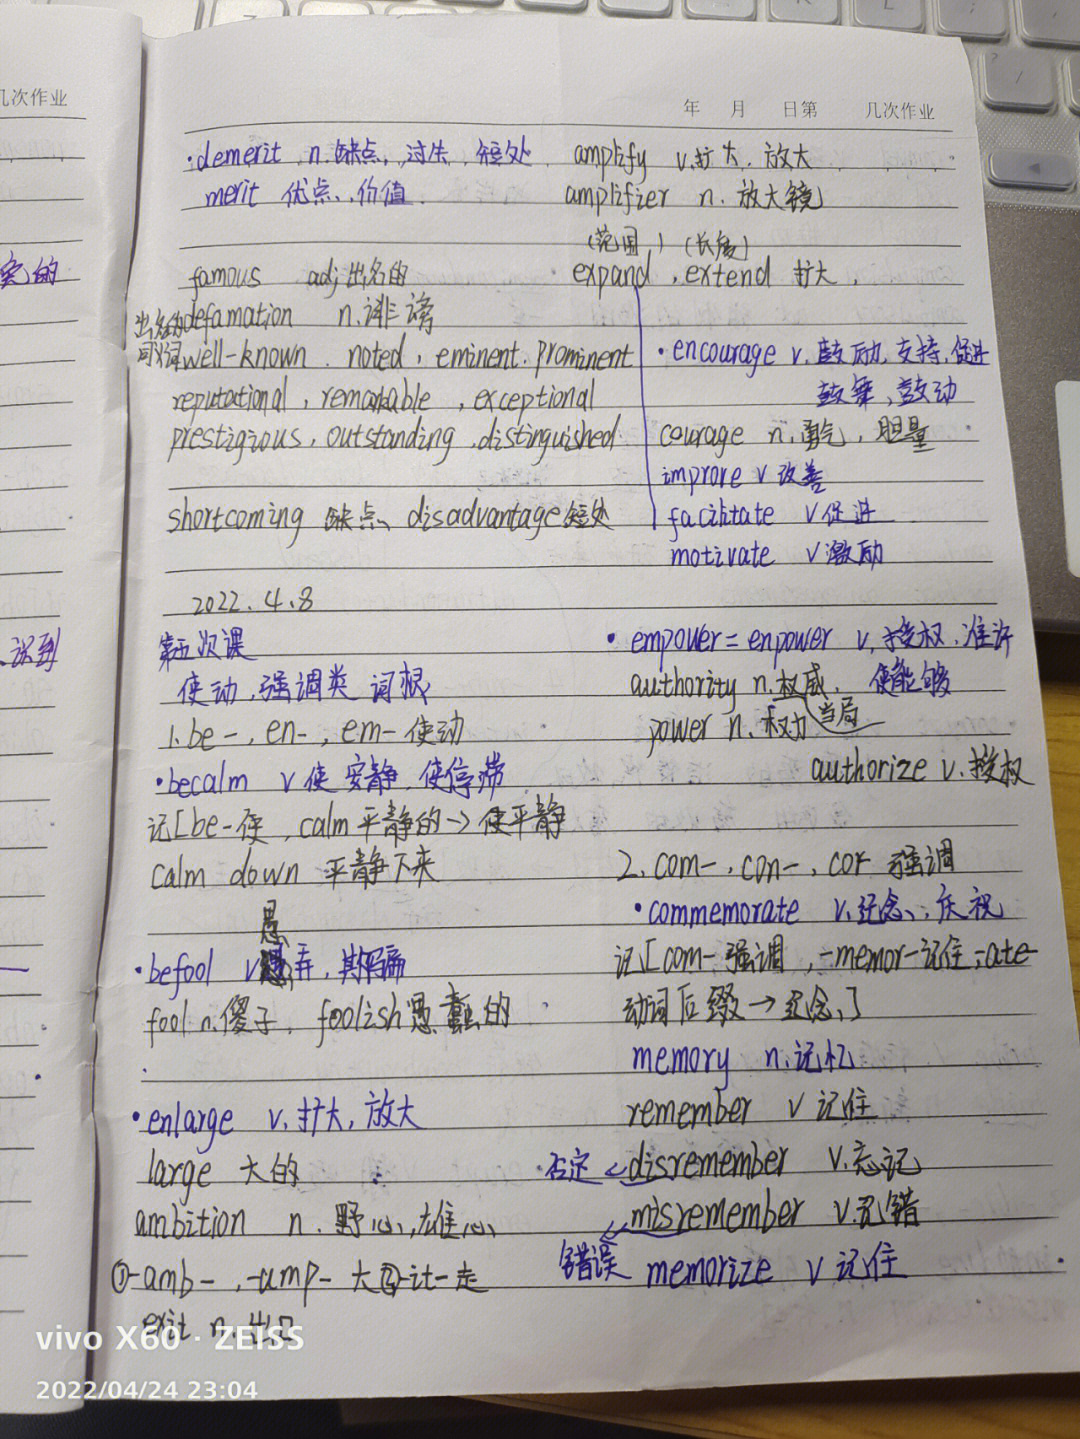 几次作业
年 月 日第 几次作业
实的
识到
·demerit n.缺点,过失,短处
merit 优点、价值.
famous adj 出名的
defamation n.诽谤
出名的
同义词 well-known . noted , eminent . prominent
reputational , remarkable , exceptional
prestigious , outstanding , distinguished
shortcoming 缺点、disadvantage 短处
2022.4.8
第五次课
使动,强调类 词根
1. be-, en-, em- 使动
·becalm v 使安静,使停滞
记[be-使,calm 平静的→使平静
calm down 平静下来
愚
·befool v 弄,欺骗
fool n.傻子, foolish 愚蠢的
·enlarge v.扩大,放大
large 大的
ambition n.野心,雄心
①-amb-,-amp- 大②-it-走
exit n.出口
amplify v.扩大,放大
amplifier n.放大镜
(范围) (长度)
expand , extend 扩大,
·encourage v.鼓励,支持,促进
鼓舞,鼓动
courage n.勇气,胆量
improve v 改善
facilitate v 促进
motivate v 激励
·empower = enpower v.授权,准许
authority n.权威, 使能够
当局
power n.权力
authorize v.授权
2. com-, con-, cor 强调
·commemorate v.纪念,庆祝
记[com-强调,-memor-记住;-ate-
动词后缀→纪念]
memory n.记忆
remember v 记住
否定 ← disremember v.忘记
misremember v.记错
错误 memorize v 记住
vivo X60 · ZEISS
2022/04/24 23:04